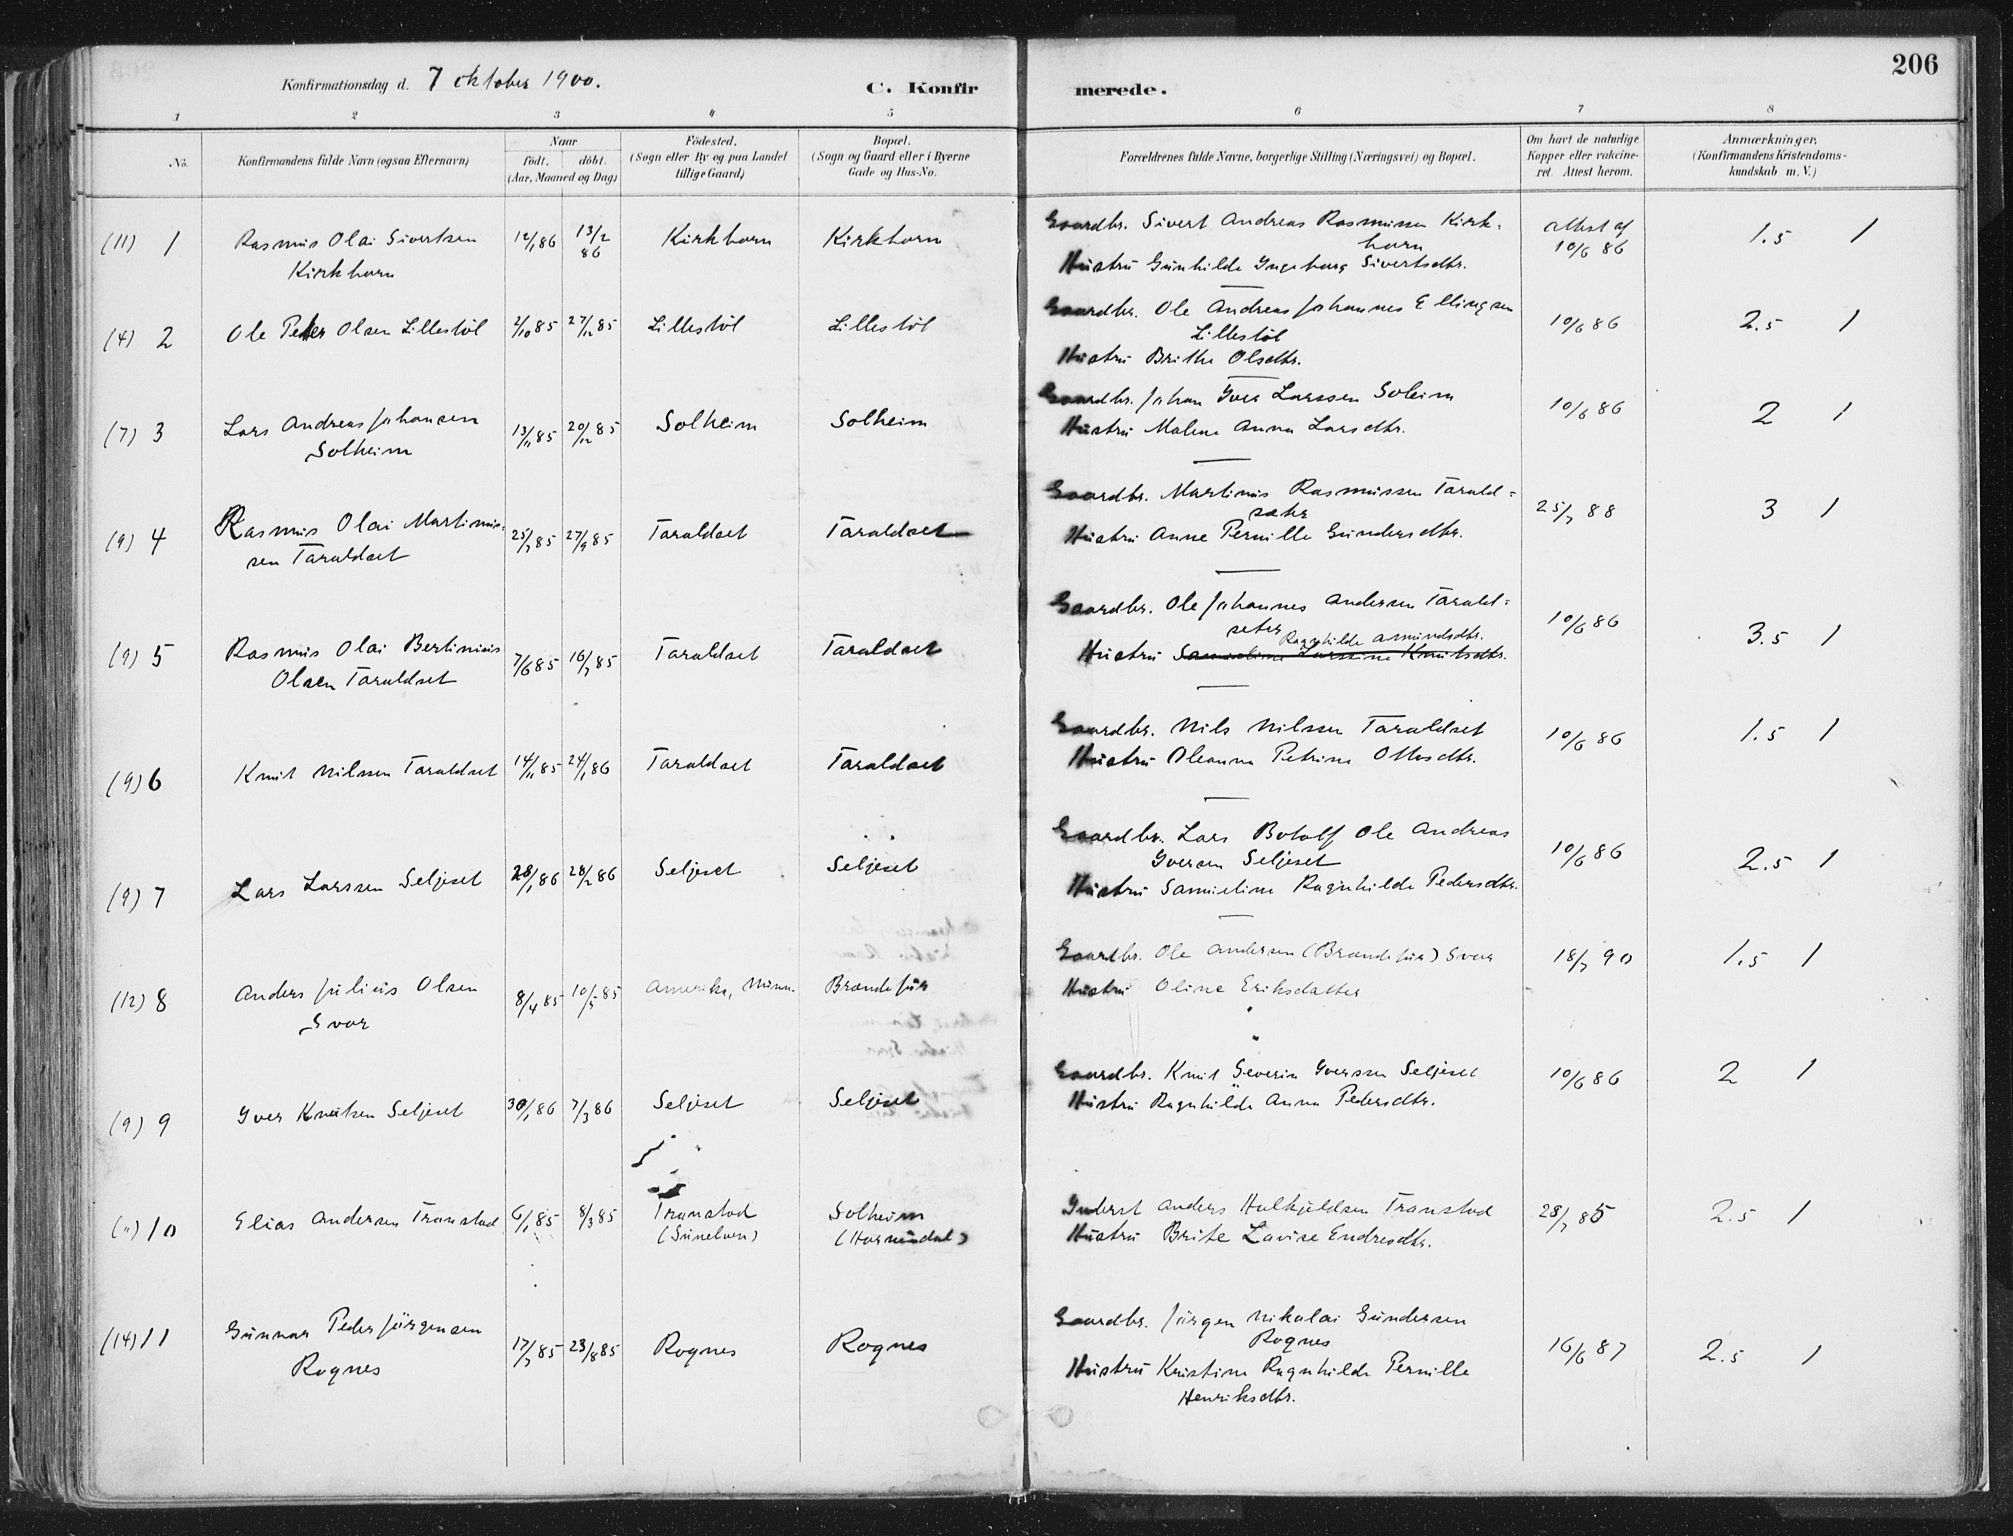 206
Konfirmationsdag d. 7 oktober 1900.
C. Konfirmerede.
1 2 3 4 5 6 7 8
No.
Konfirmandens fulde Navn (ogsaa Efternavn)
Naar
födt. döbt.
(Aar, Maaned og Dag)
Födested.
(Sogn eller By og paa Landet
tillige Gaard)
Bopæl.
(Sogn og Gaard eller i Byerne
Gade og Hus-No.
Forældrenes fulde Navne, borgerlige Stilling (Næringsvei) og Bopæl.
Om havt de naturlige
Kopper eller vakcine-
ret. Attest herom.
Anmærkninger.
(Konfirmandens Kristendoms-
kundskab m. V.)
(11) 1 Rasmus Olai Sivertsen 12/1 86 13/2 86 Kirkhorn Kirkhorn
Kirkhorn
Gaardbr. Sivert Andreas Rasmussen Kirk-
horn
Hustru Gunhilde Ingeborg Sivertsdtr.
attest af
10/6 86 1.5 1
(4) 2 Ole Peter Olsen Lillestöl 2/10 85 27/12 85 Lillestöl Lillestöl
Gaardbr. Ole Andreas Johannes Ellingsen
Lillestöl
Hustru Brithe Olsdtr.
10/6 86 2.5 1
(7) 3 Lars Andreas Johansen 13/11 85 20/12 85 Solheim Solheim
Solheim
Gaardbr. Johan Iver Larssen Soleim
Hustru Malene Anna Larsdtr.
10/6 86 2 1
(9) 4 Rasmus Olai Martinus- 25/7 85 27/9 85 Taraldset Taraldset
sen Taraldset
Gaardbr. Martinus Rasmussen Tarald-
sæter
Hustru Anne Pernille Gundersdtr.
25/7 88 3 1
(9) 5 Rasmus Olai Bertinius 7/6 85 16/7 85 Taraldset Taraldset
Olsen Taraldset
Gaardbr. Ole Johannes Andersen Tarald-
seter
Ragnhilde Amundsdtr.
Hustru Samueline Larssine Knutsdtr.
10/6 86 3.5 1
(9) 6 Knut Nilssen Taraldset 14/11 85 24/1 86 Taraldset Taraldset
Gaardbr. Nils Nilssen Taraldset
Hustru Oleanna Petrine Ottosdtr.
10/6 86 1.5 1
(9) 7 Lars Larssen Seljeset 28/1 86 28/2 86 Seljeset Seljeset
Gaardbr. Lars Botolf Ole Andreas
Iversen Seljeset
Hustru Samueline Ragnhilde Pedersdtr.
10/6 86 2.5 1
(12) 8 Anders Julius Olsen 8/4 85 10/5 85 Amerika, Minn. Brandefur
Svor
Gaardbr. Ole Andersen (Brandefur) Svor
Hustru Oline Eriksdatter
18/7 90 1.5 1
(9) 9 Iver Knutsen Seljeset 30/1 86 7/3 86 Seljeset Seljeset
Gaardbr. Knut Severin Iverssen Seljeset
Hustru Ragnhilde Anna Pedersdtr.
10/6 86 2 1
(") 10 Elias Andersen Tronstad 6/1 85 8/3 85 Tronstad Solheim
(Sunelven) (Hornindal)
Inderst Anders Halkjeldsen Tronstad
Hustru Brite Lavise Endresdtr.
28/7 85 2.5 1
(14) 11 Gunnar Peder Jörgensen 17/7 85 23/8 85 Rognes Rognes
Rognes
Gaardbr. Jörgen Nikolai Gundersen
Rognes
Hustru Kristine Ragnhilde Pernille
Henriksdtr.
16/6 87 2.5 1